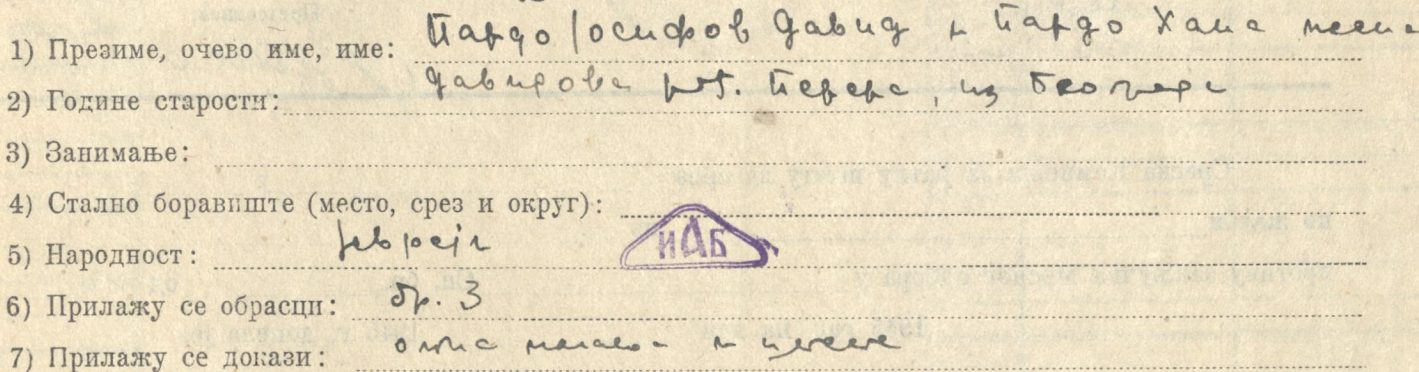 1) Презиме, очево име, име: Пардо Јосифов Давид и Пардо Хана жена
Давидова рођ. Перера, из Београда
2) Године старости:
3) Занимање:
4) Стално боравиште (место, срез и округ):
5) Народност: Јевреји
ИАБ
6) Прилажу се обрасци: бр. 3
7) Прилажу се докази: